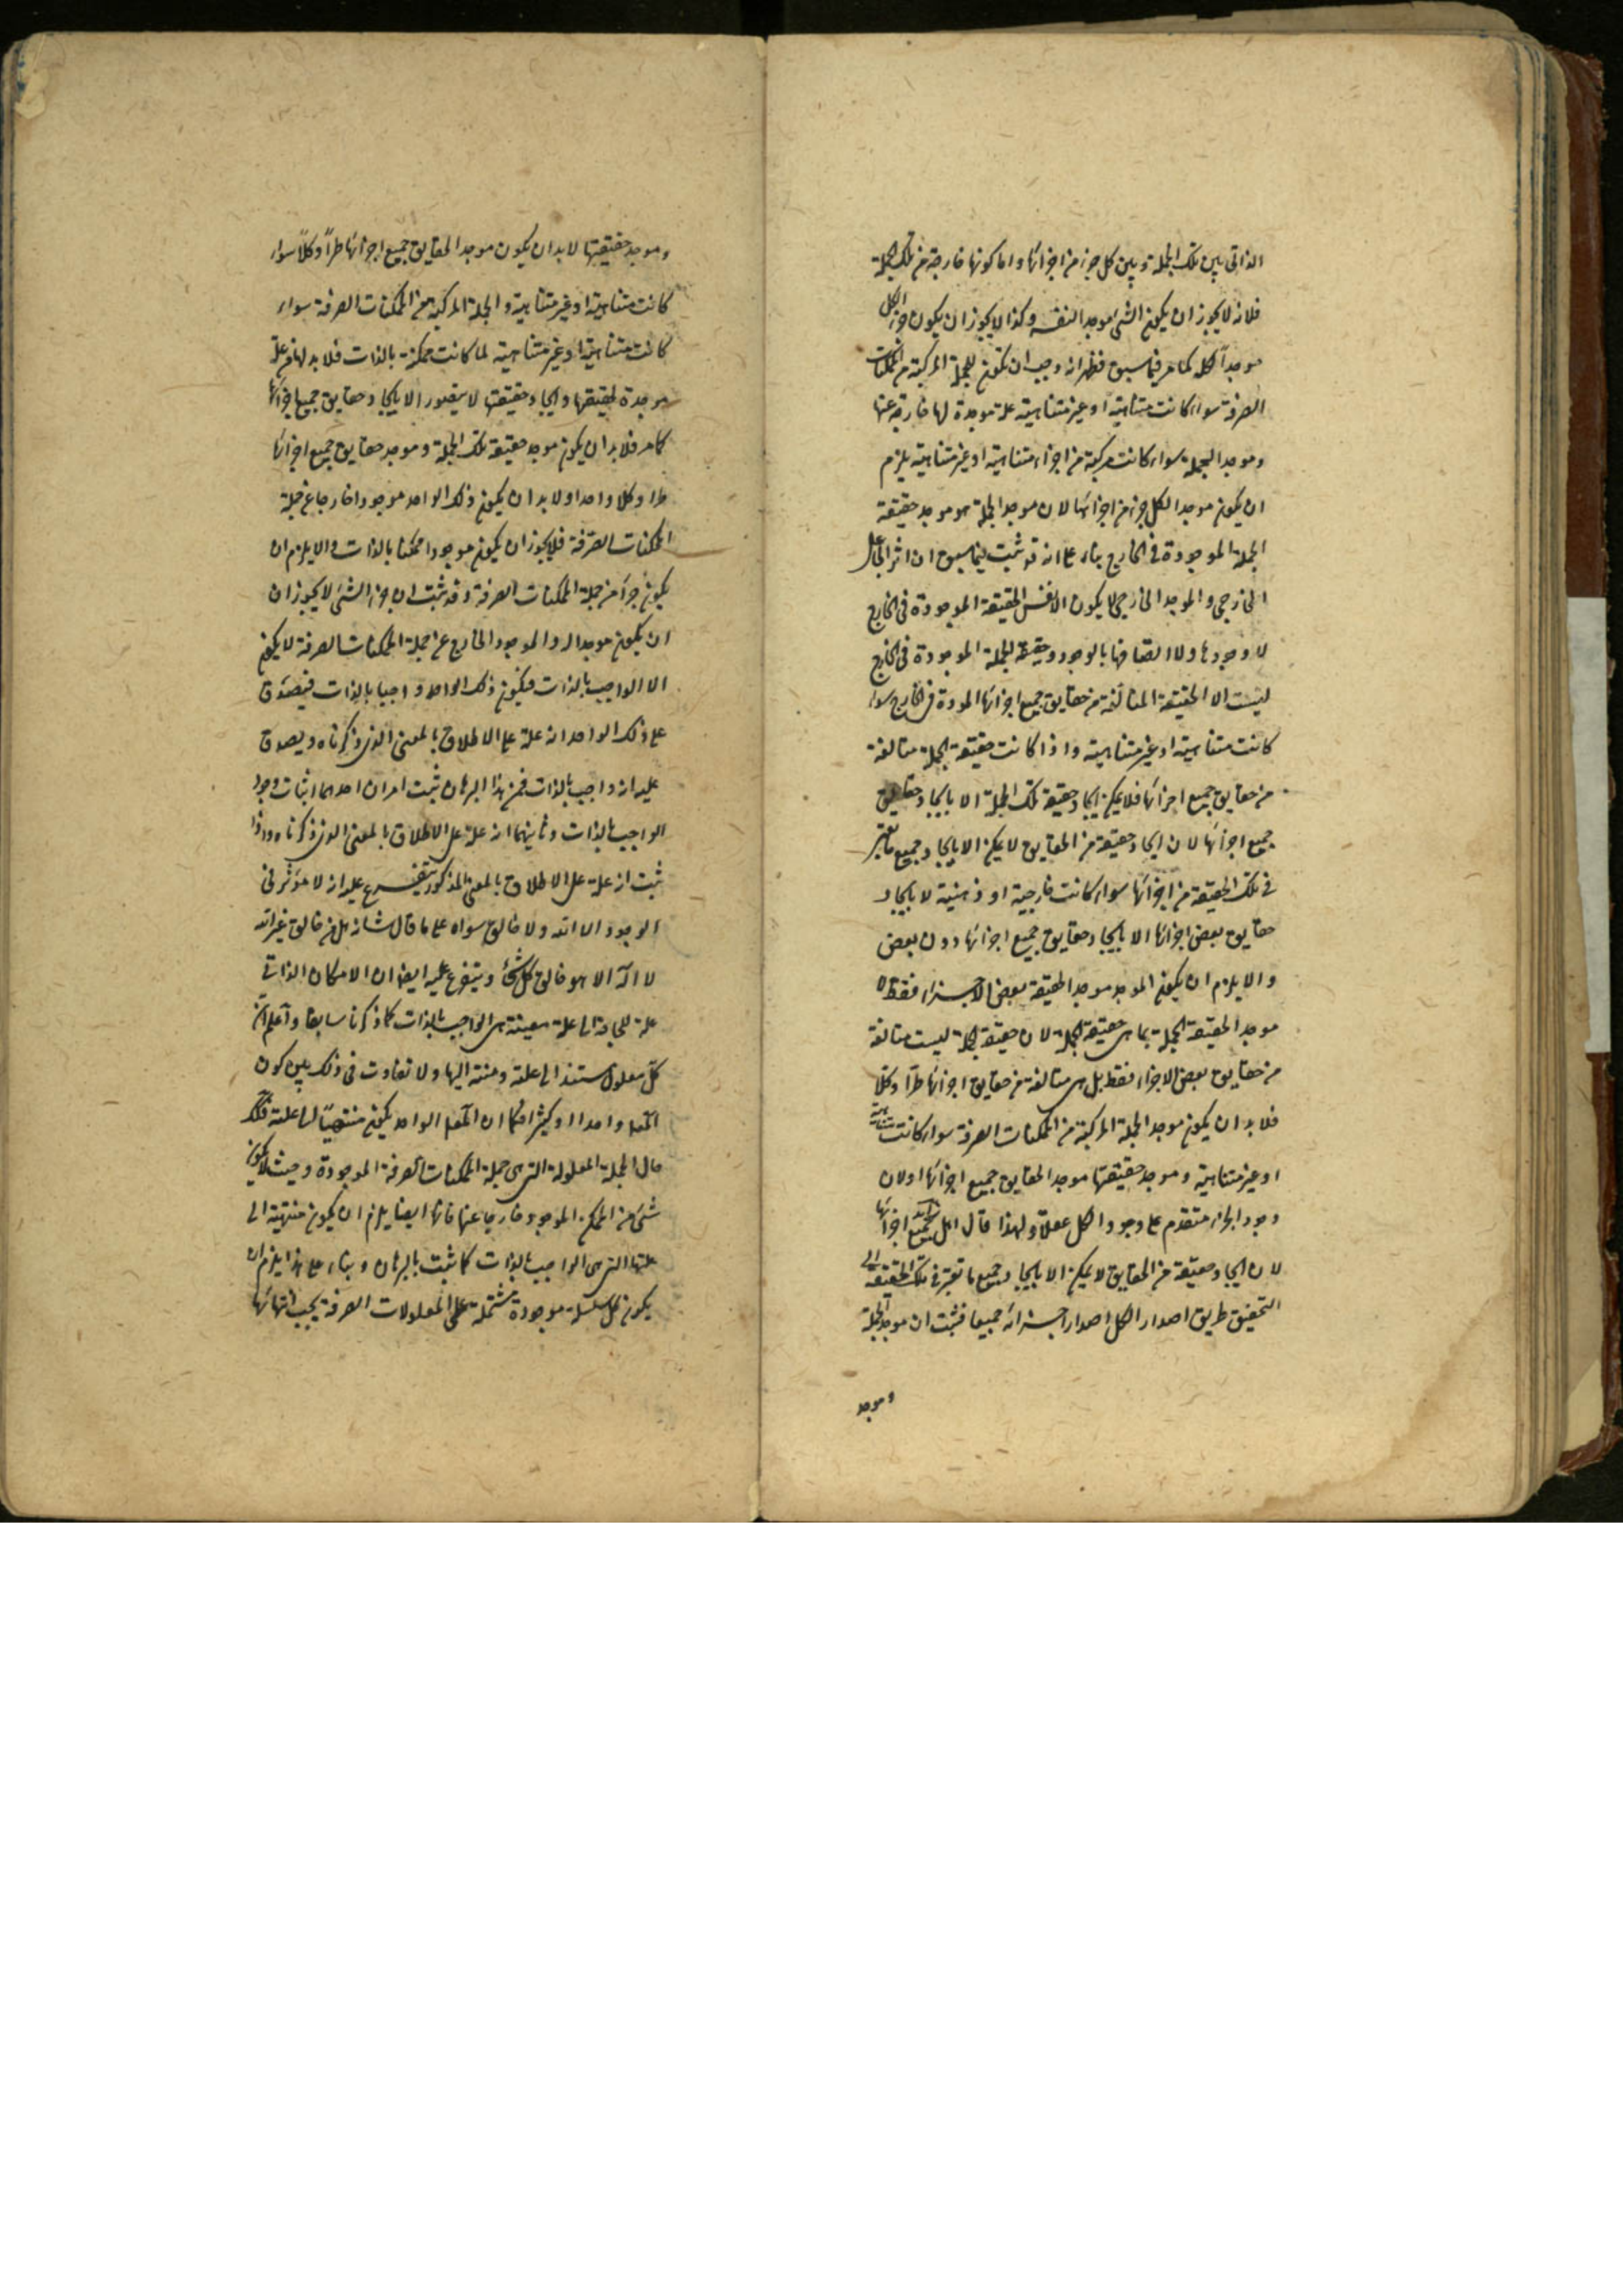 الذاتى بين تلك الجملة وبين كل جزء من اجزائها واما كونها خارجة من تلك الجملة
فلانه لا يجوز ان يكون الشئ موجدا لنفسه وكذا لا يجوز ان يكون جزء الكل
موجداً لكله كما مر فيما سبق فظهر انه وجب ان تكون للجملة المركبة من الممكنات
الصرفة سواء كانت متناهية او غير متناهية علة موجدة لها خارجة عنها
وموجد الجملة سواء كانت مركبة من اجزاء متناهية او غير متناهية يلزم
ان يكون موجدا لكل جزء من اجزائها لان موجد الجملة هو موجد حقيقة
الجملة الموجودة فى الخارج بناء على انه قد ثبت فيما سبق ان اثر الجاعل
الخارجى والموجد الخارجى لا يكون الا نفس الحقيقة الموجودة فى الخارج
لا وجودها ولا اتصافها بالوجود وحقيقة الجملة الموجودة فى الخارج
ليست الا الحقيقة المتألفة من حقايق جميع اجزائها الموجودة فى الخارج سواء
كانت متناهية او غير متناهية واذا كانت حقيقة الجملة متالفة
من حقايق جميع اجزائها فلا يمكن ايجاد حقيقة تلك الجملة الا بايجاد حقايق
جميع اجزائها لان ايجاد حقيقة من الحقايق لا يمكن الا بايجاد جميع ما يعتبر
فى تلك الحقيقة من اجزائها سواء كانت خارجية او ذهنية لا بايجاد
حقايق بعض اجزائها الا بايجاد حقايق جميع اجزائها دون بعض
والا يلزم ان يكون الموجد موجد الحقيقة بعض الاجزاء فقط لا
موجد الحقيقة الجملة بما هى حقيقة الجملة لان حقيقة الجملة ليست متالفة
من حقايق بعض الاجزاء فقط بل هى متالفة من حقايق اجزائها طرّا وكلّا
فلا بد ان يكون موجد الجملة المركبة من الممكنات الصرفة سواء كانت متناهية
او غير متناهية وموجد حقيقتها موجد الحقايق جميع اجزائها اولان
وجود الجزء متقدم على وجود الكل عقلاً ولهذا قال اهل جميع اجزائها
لان ايجاد حقيقة من الحقايق لا يمكن الا بايجاد جميع ما تعتبر فى تلك الحقيقة
التحقيق طريق اصدار الكل اصدار اجزائه جميعا فثبت ان موجد الجملة
وموجد
وموجد حقيقتها لا بد ان يكون موجد الحقايق جميع اجزائها طراً وكلاً سواء
كانت متناهية او غير متناهية والجملة المركبة من الممكنات الصرفة سواء
كانت متناهية او غير متناهية لما كانت ممكنة بالذات فلا بد لها من علة
موجدة لحقيقتها وايجاد حقيقتها لا يتصور الا بايجاد حقايق جميع اجزائها
كما مر فلا بد ان يكون موجد حقيقة تلك الجملة وموجد حقايق جميع اجزائها
طرا وكلا واحدا ولا بد ان يكون ذلك الواحد موجودا خارجا عن جملة
الممكنات الصرفة فلا يجوز ان يكون موجودا ممكنا بالذات والا يلزم ان
يكون جزءً من جملة الممكنات الصرفة وقد ثبت ان جزء الشئ لا يجوز ان
ان يكون موجدا له والموجود الخارج عن جملة الممكنات الصرفة لا يكون
الا الواجب بالذات فيكون ذلك الواحد واجبا بالذات فيصدق
على ذلك الواحد انه علة على الاطلاق بالمعنى الذى ذكرناه ويصدق
عليه انه واجب بالذات فمن هذا البرهان ثبت امران احدهما اثبات وجود
الواجب بالذات وثانيهما انه علة على الاطلاق بالمعنى الذى ذكرناه واذا
ثبت انه علة على الاطلاق بالمعنى المذكور يتفرع عليه انه لا مؤثر فى
الوجود الا الله ولا خالق سواه على ما قال شانه هل من خالق غير الله
لا اله الا هو خالق كل شئ ويتفرع عليه ايضا ان الامكان الذاتى
علة للحاجة الى علة معينة هى الواجب بالذات كما ذكرنا سابقا واعلم ان
كل معلول مستند الى علته ومنته اليها ولا تفاوت فى ذلك بين كون
المعلول واحدا او كثيرا فكما ان المعلول الواحد يكون منتهيا الى علته فكذلك
حال الجملة المعلولة التى هى جملة الممكنات الصرفة الموجودة وحيث لا يكون
شئ من الممكن الموجود خارجا عنها فانها ايضا يلزم ان يكون منتهية الى
علتها التى هى الواجب بالذات كما ثبت بالبرهان وبناء على هذا يلزم ان
يكون كل سلسلة موجودة مشتملة على المعلولات الصرفة يجب انتهائها